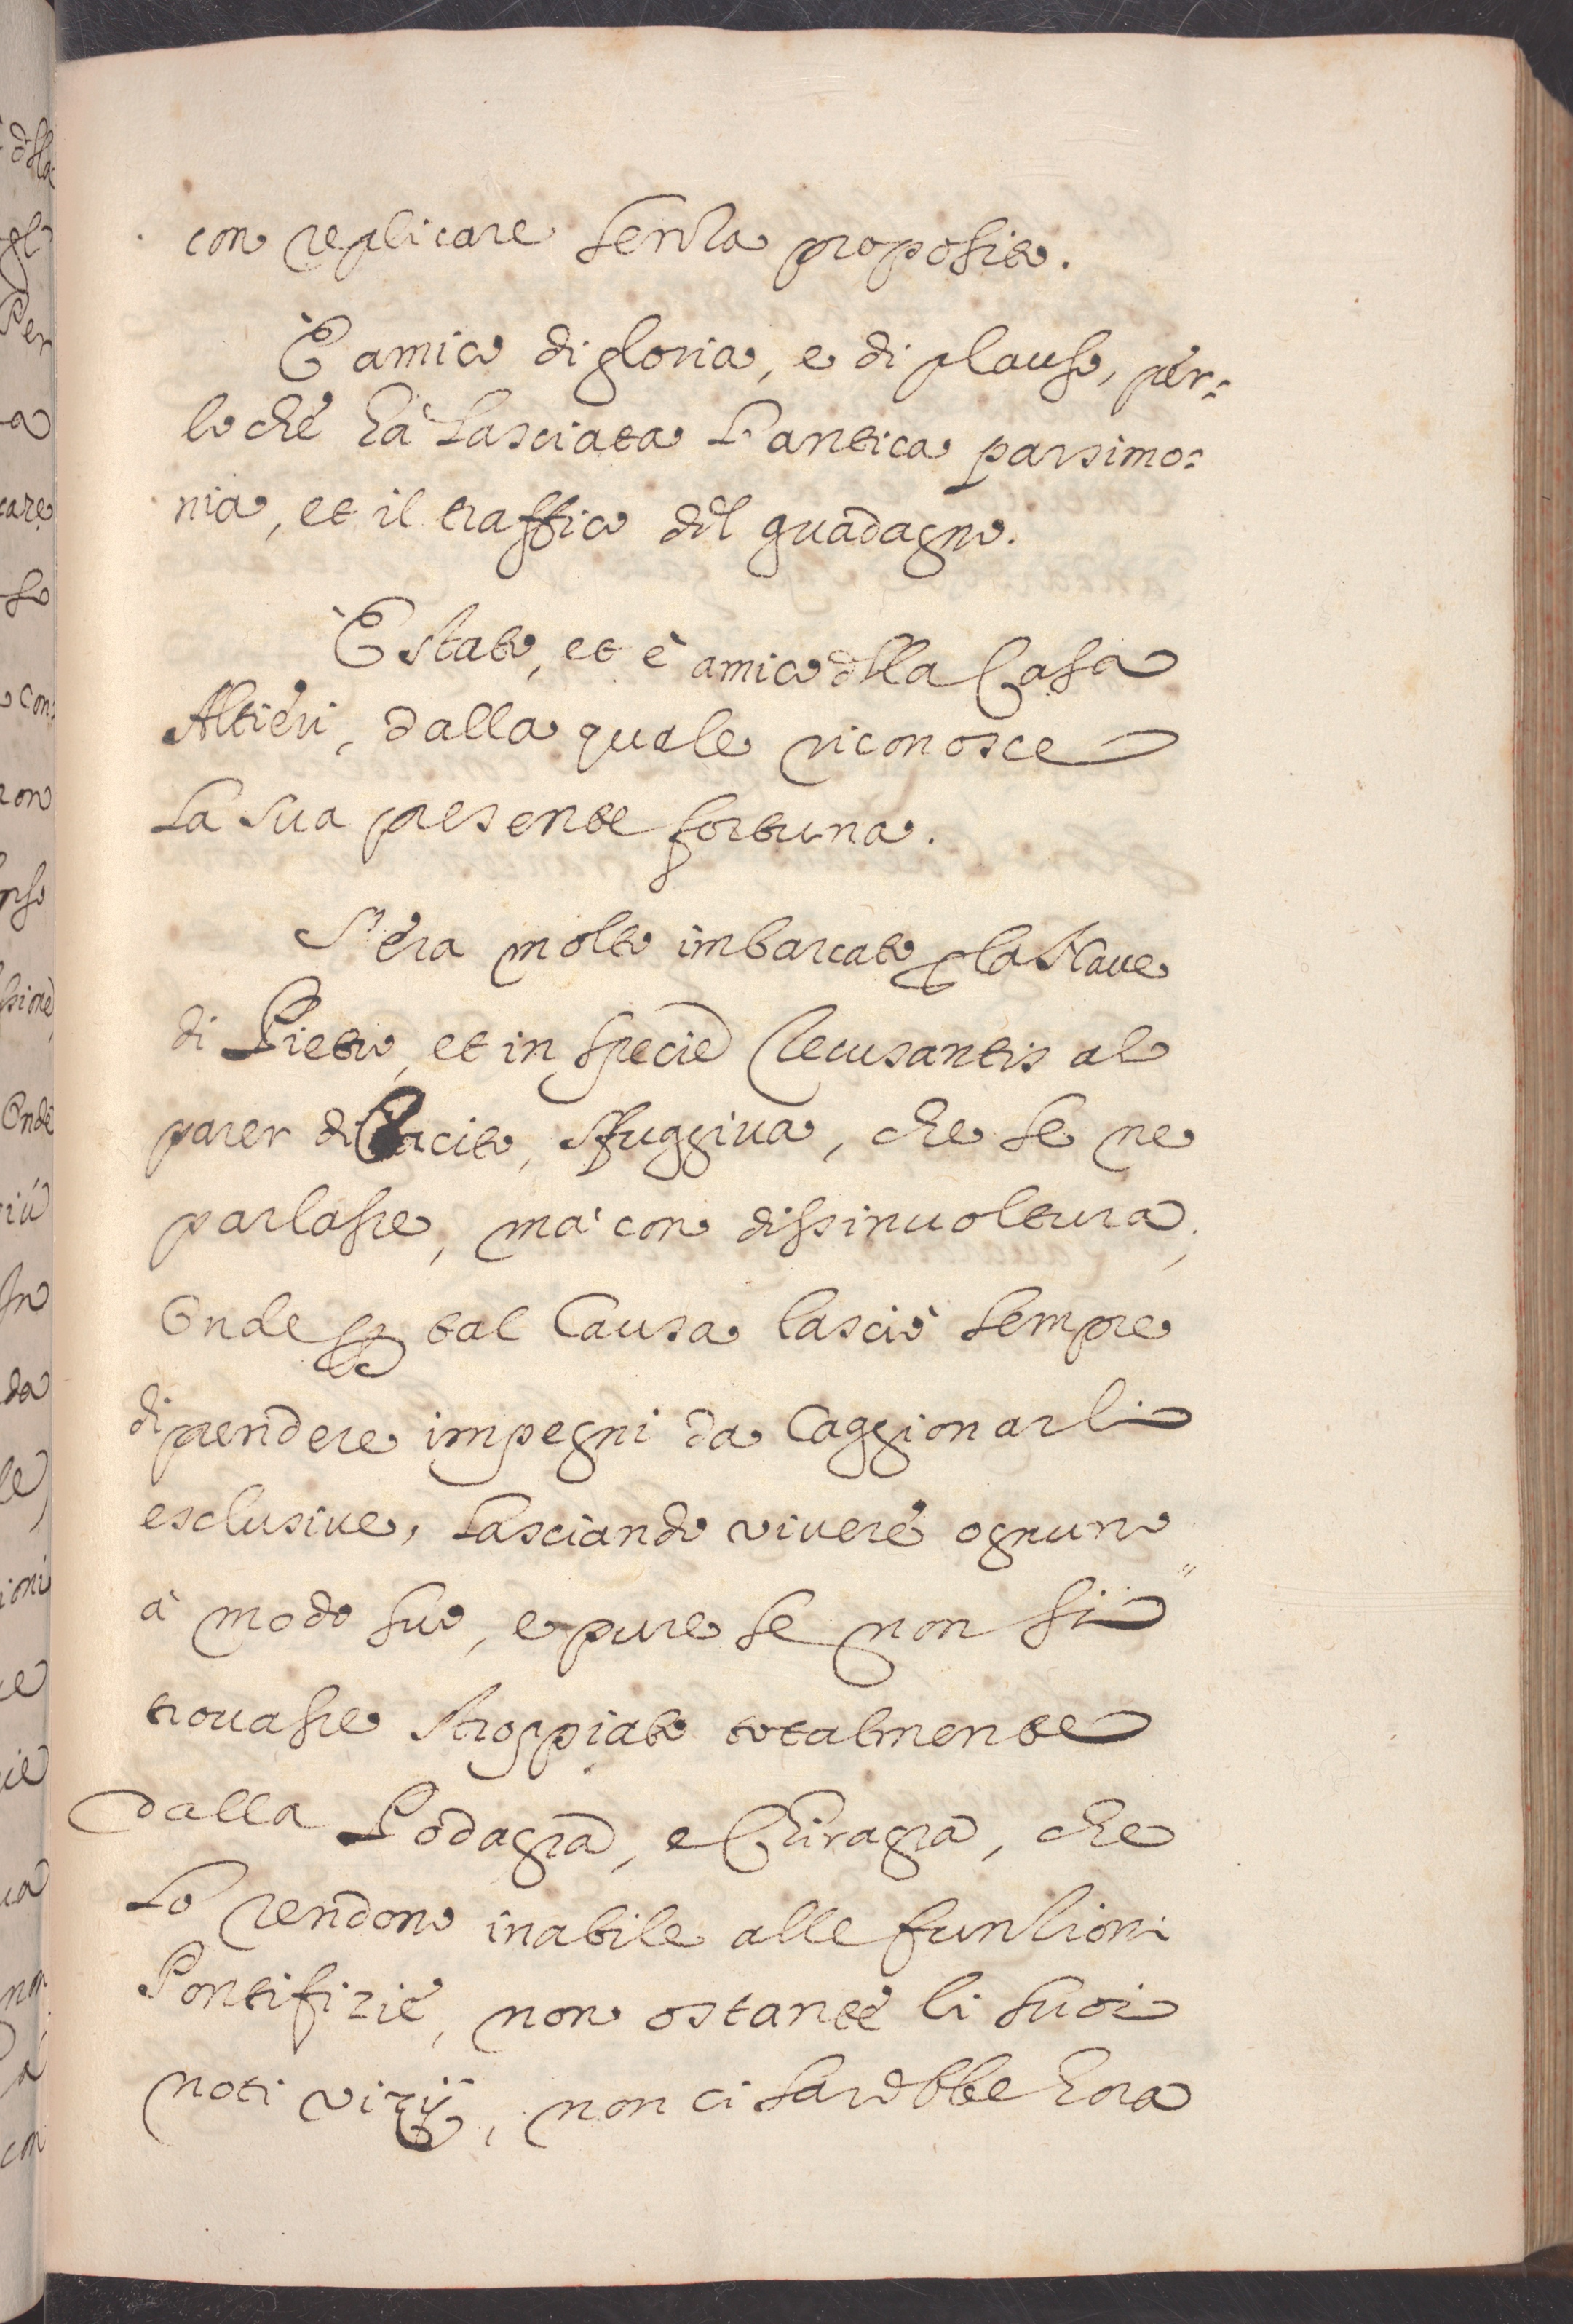 con replicare senza proposito.
È amico di gloria, e di plauso, per=
lo che hà lasciata l'antica parsimo=
nia, et il traffico del guadagno.
È stato, et è amico della Casa
Altieri, dalla quale riconosce
la sua presente fortuna.
S'era molto imbarcato per la Naue
di Pietro, et in specie recusantis al
parer di Tacito, sfuggiua, che se ne
parlasse, mà con dissinuoltura;
Onde per tal causa lasciò sempre
di prendere impegni da caggionarli
esclusiue, lasciando viuere ognuno
à modo suo, e pure se non si"
trouasse stroppiato totalmente
dalla Podagra, e Chiragra, che
lo rendono inabile alle funzioni
Pontifizie, non ostante li suoi
noti vizÿ, non ci sarebbe hora